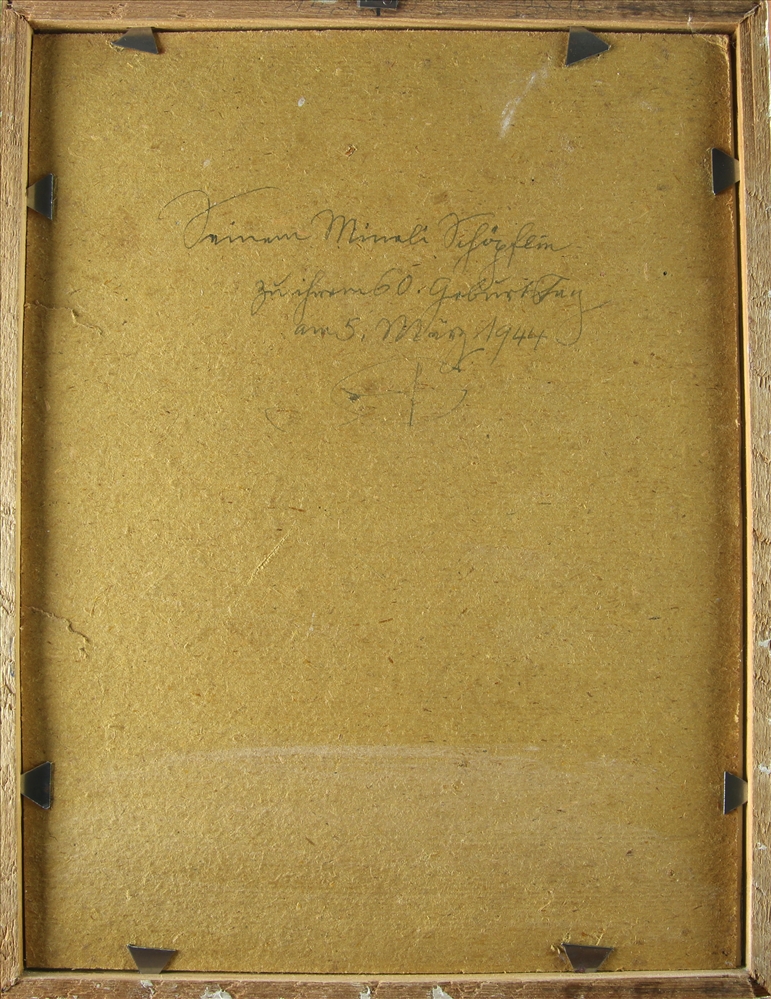 Seinem Mineli Schöpflin
zu ihrem 60. Geburtstag
am 5. März 1944.